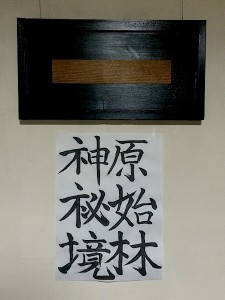 原始林
神秘境